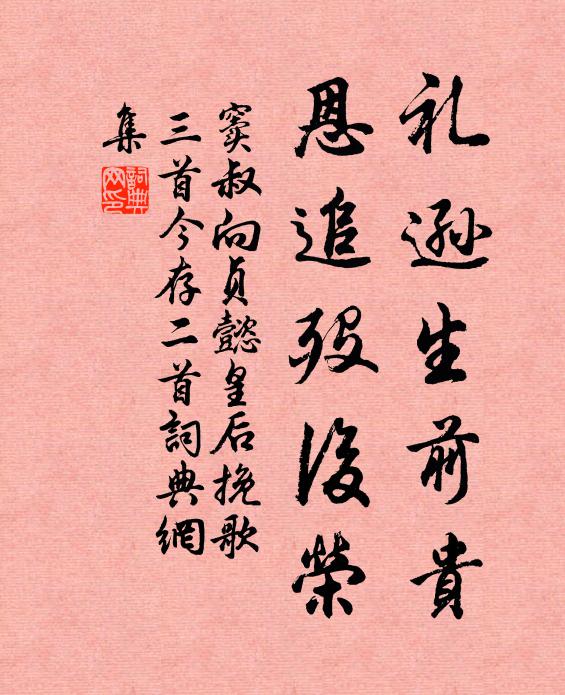 礼逊生前貴
恩追歿後榮
窦叔向貞懿皇后挽歌
三首今存二首詞典網
集
詞典網印